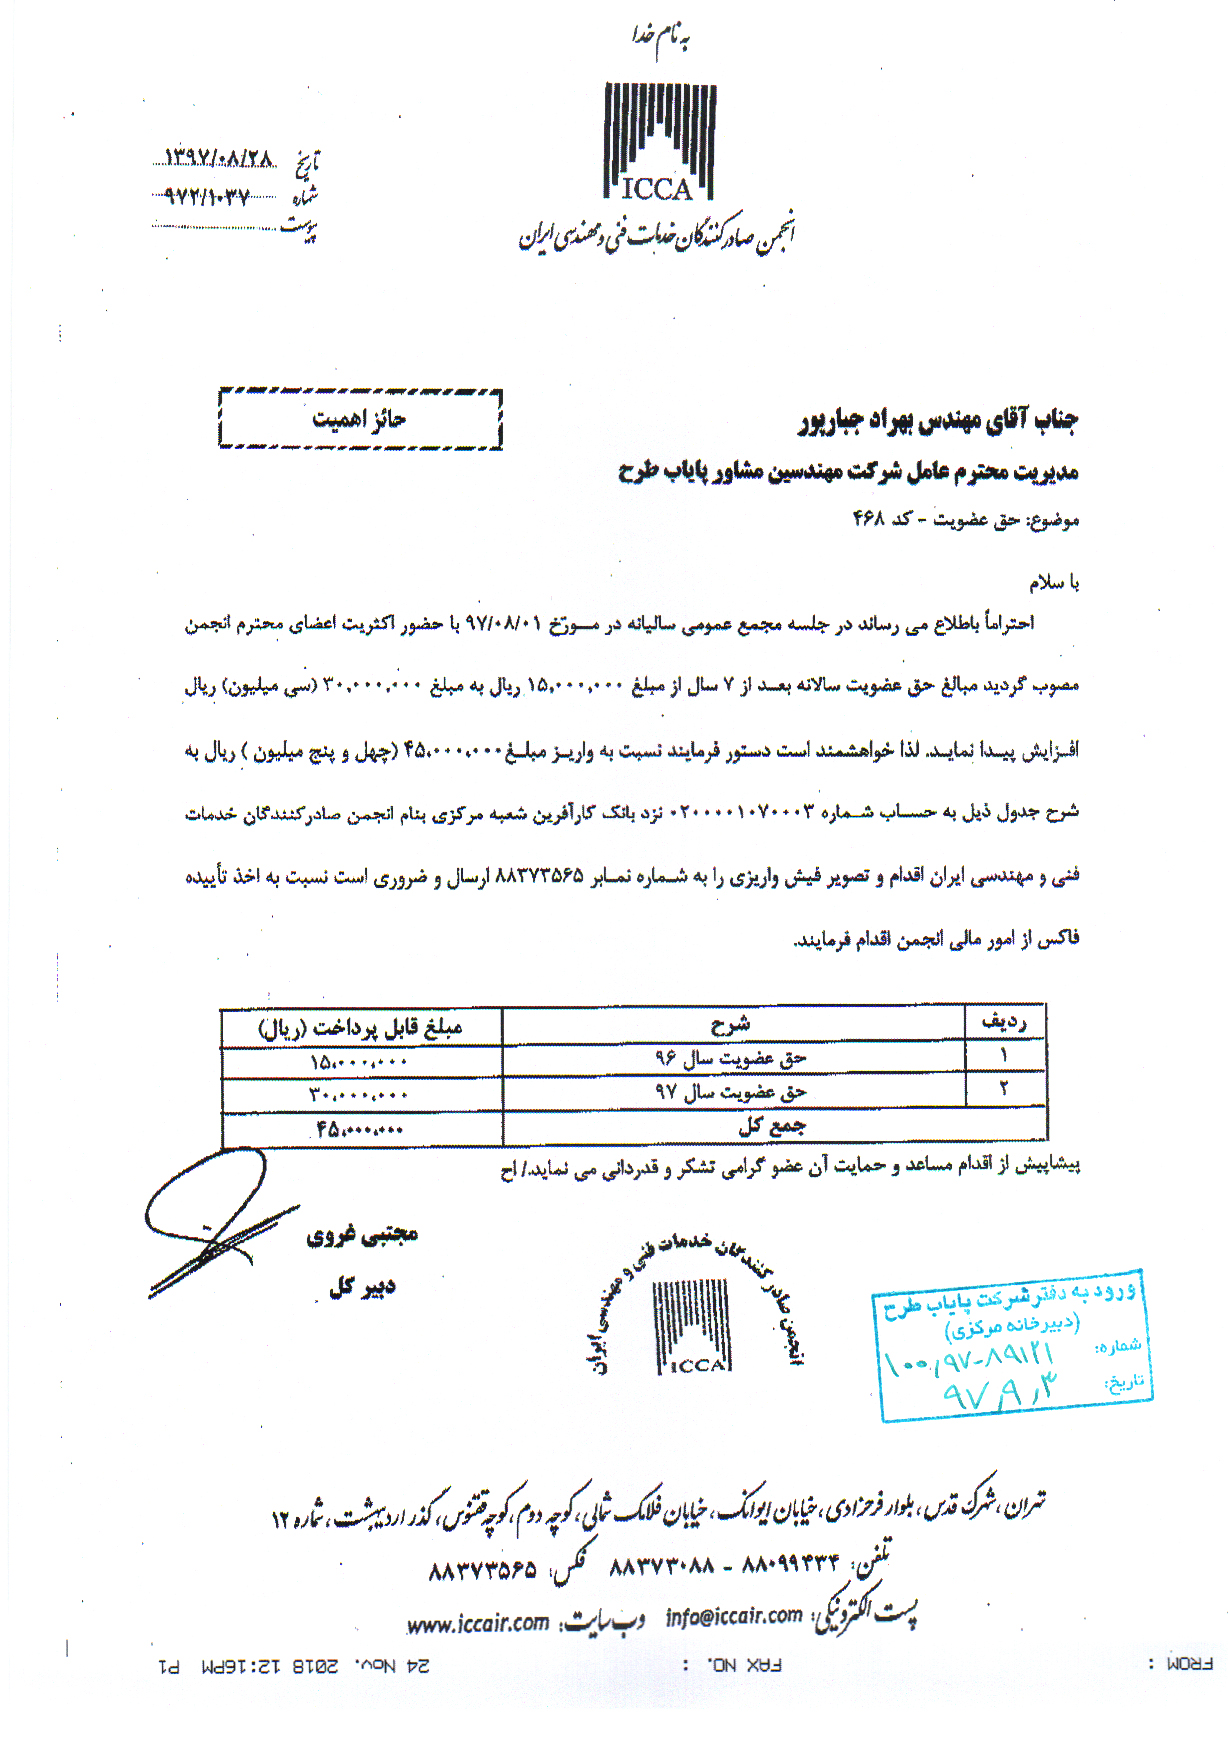 به نام خدا
ICCA
انجمن صادرکنندگان خدمات فنی و مهندسی ایران
تاریخ ۱۳۹۷/۰۸/۲۸
شماره ۹۷۲/۱۰۳۷
پیوست
حائز اهمیت
جناب آقای مهندس بهراد جبارپور
مدیریت محترم عامل شرکت مهندسین مشاور پایاب طرح
موضوع: حق عضویت - کد ۴۶۸
با سلام
احتراماً باطلاع می رساند در جلسه مجمع عمومی سالیانه در مـورخ ۹۷/۰۸/۰۱ با حضور اکثریت اعضای محترم انجمن
مصوب گردید مبالغ حق عضویت سالانه بعـد از ۷ سال از مبلغ ۱۵,۰۰۰,۰۰۰ ریال به مبلغ ۳۰,۰۰۰,۰۰۰ (سی میلیون) ریال
افـزایش پیـدا نمایـد. لذا خواهشمند است دستور فرمایند نسبت به واریـز مبلـغ ۴۵,۰۰۰,۰۰۰ (چهل و پنج میلیون ) ریال به
شرح جدول ذیل به حسـاب شـماره ۰۲۰۰۰۰۱۰۷۰۰۰۳ نزد بانک کارآفرین شعبه مرکزی بنام انجمن صادرکنندگان خدمات
فنی و مهندسی ایران اقدام و تصویر فیش واریزی را به شـماره نمـابر ۸۸۳۷۳۵۶۵ ارسال و ضروری است نسبت به اخذ تأییده
فاکس از امور مالی انجمن اقدام فرمایند.
ردیف شرح مبلغ قابل پرداخت (ریال)
۱ حق عضویت سال ۹۶ ۱۵,۰۰۰,۰۰۰
۲ حق عضویت سال ۹۷ ۳۰,۰۰۰,۰۰۰
جمع کل ۴۵,۰۰۰,۰۰۰
پیشاپیش از اقدام مساعد و حمایت آن عضو گرامی تشکر و قدردانی می نماید./ اح
مجتبی غروی
دبیر کل
انجمن صادرکنندگان خدمات فنی و مهندسی ایران
ICCA
ورود به دفتر شرکت پایاب طرح
(دبیرخانه مرکزی)
شماره: ۱۰۰,۹۷-۸۹۱۲۱
تاریخ: ۹۷,۹,۳
تهران، شهرک قدس، بلوار فرحزادی، خیابان ایوانک، خیابان فلامک شمالی، کوچه دوم، کوچه ققنوس، گذر اردیبهشت، شماره ۱۲
تلفن: ۸۸۰۹۹۴۳۴ - ۸۸۳۷۳۰۸۸ فکس: ۸۸۳۷۳۵۶۵
پست الکترونیکی: info@iccair.com وب سایت: www.iccair.com
FROM : FAX NO. : 24 Nov. 2018 12:16PM P1